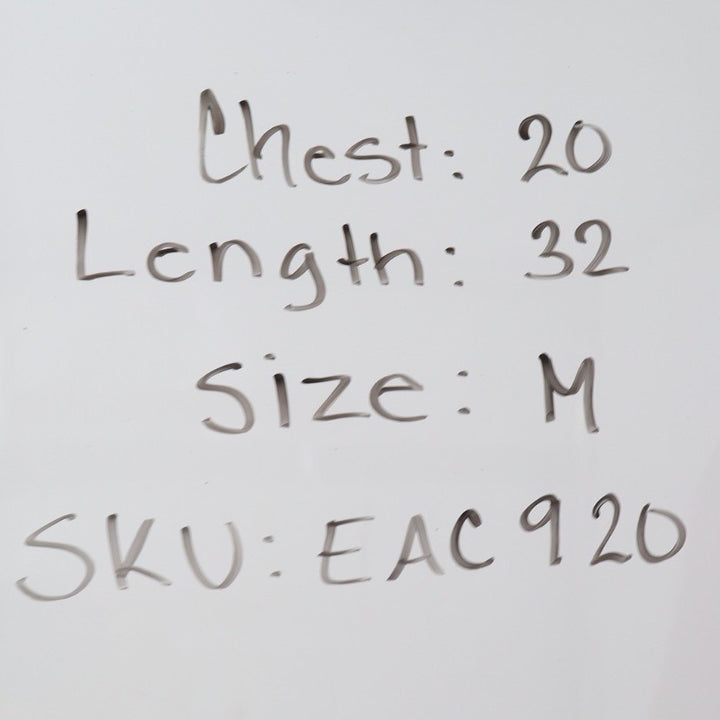 Chest: 20
Length: 32
Size: M
SKU: EAC920